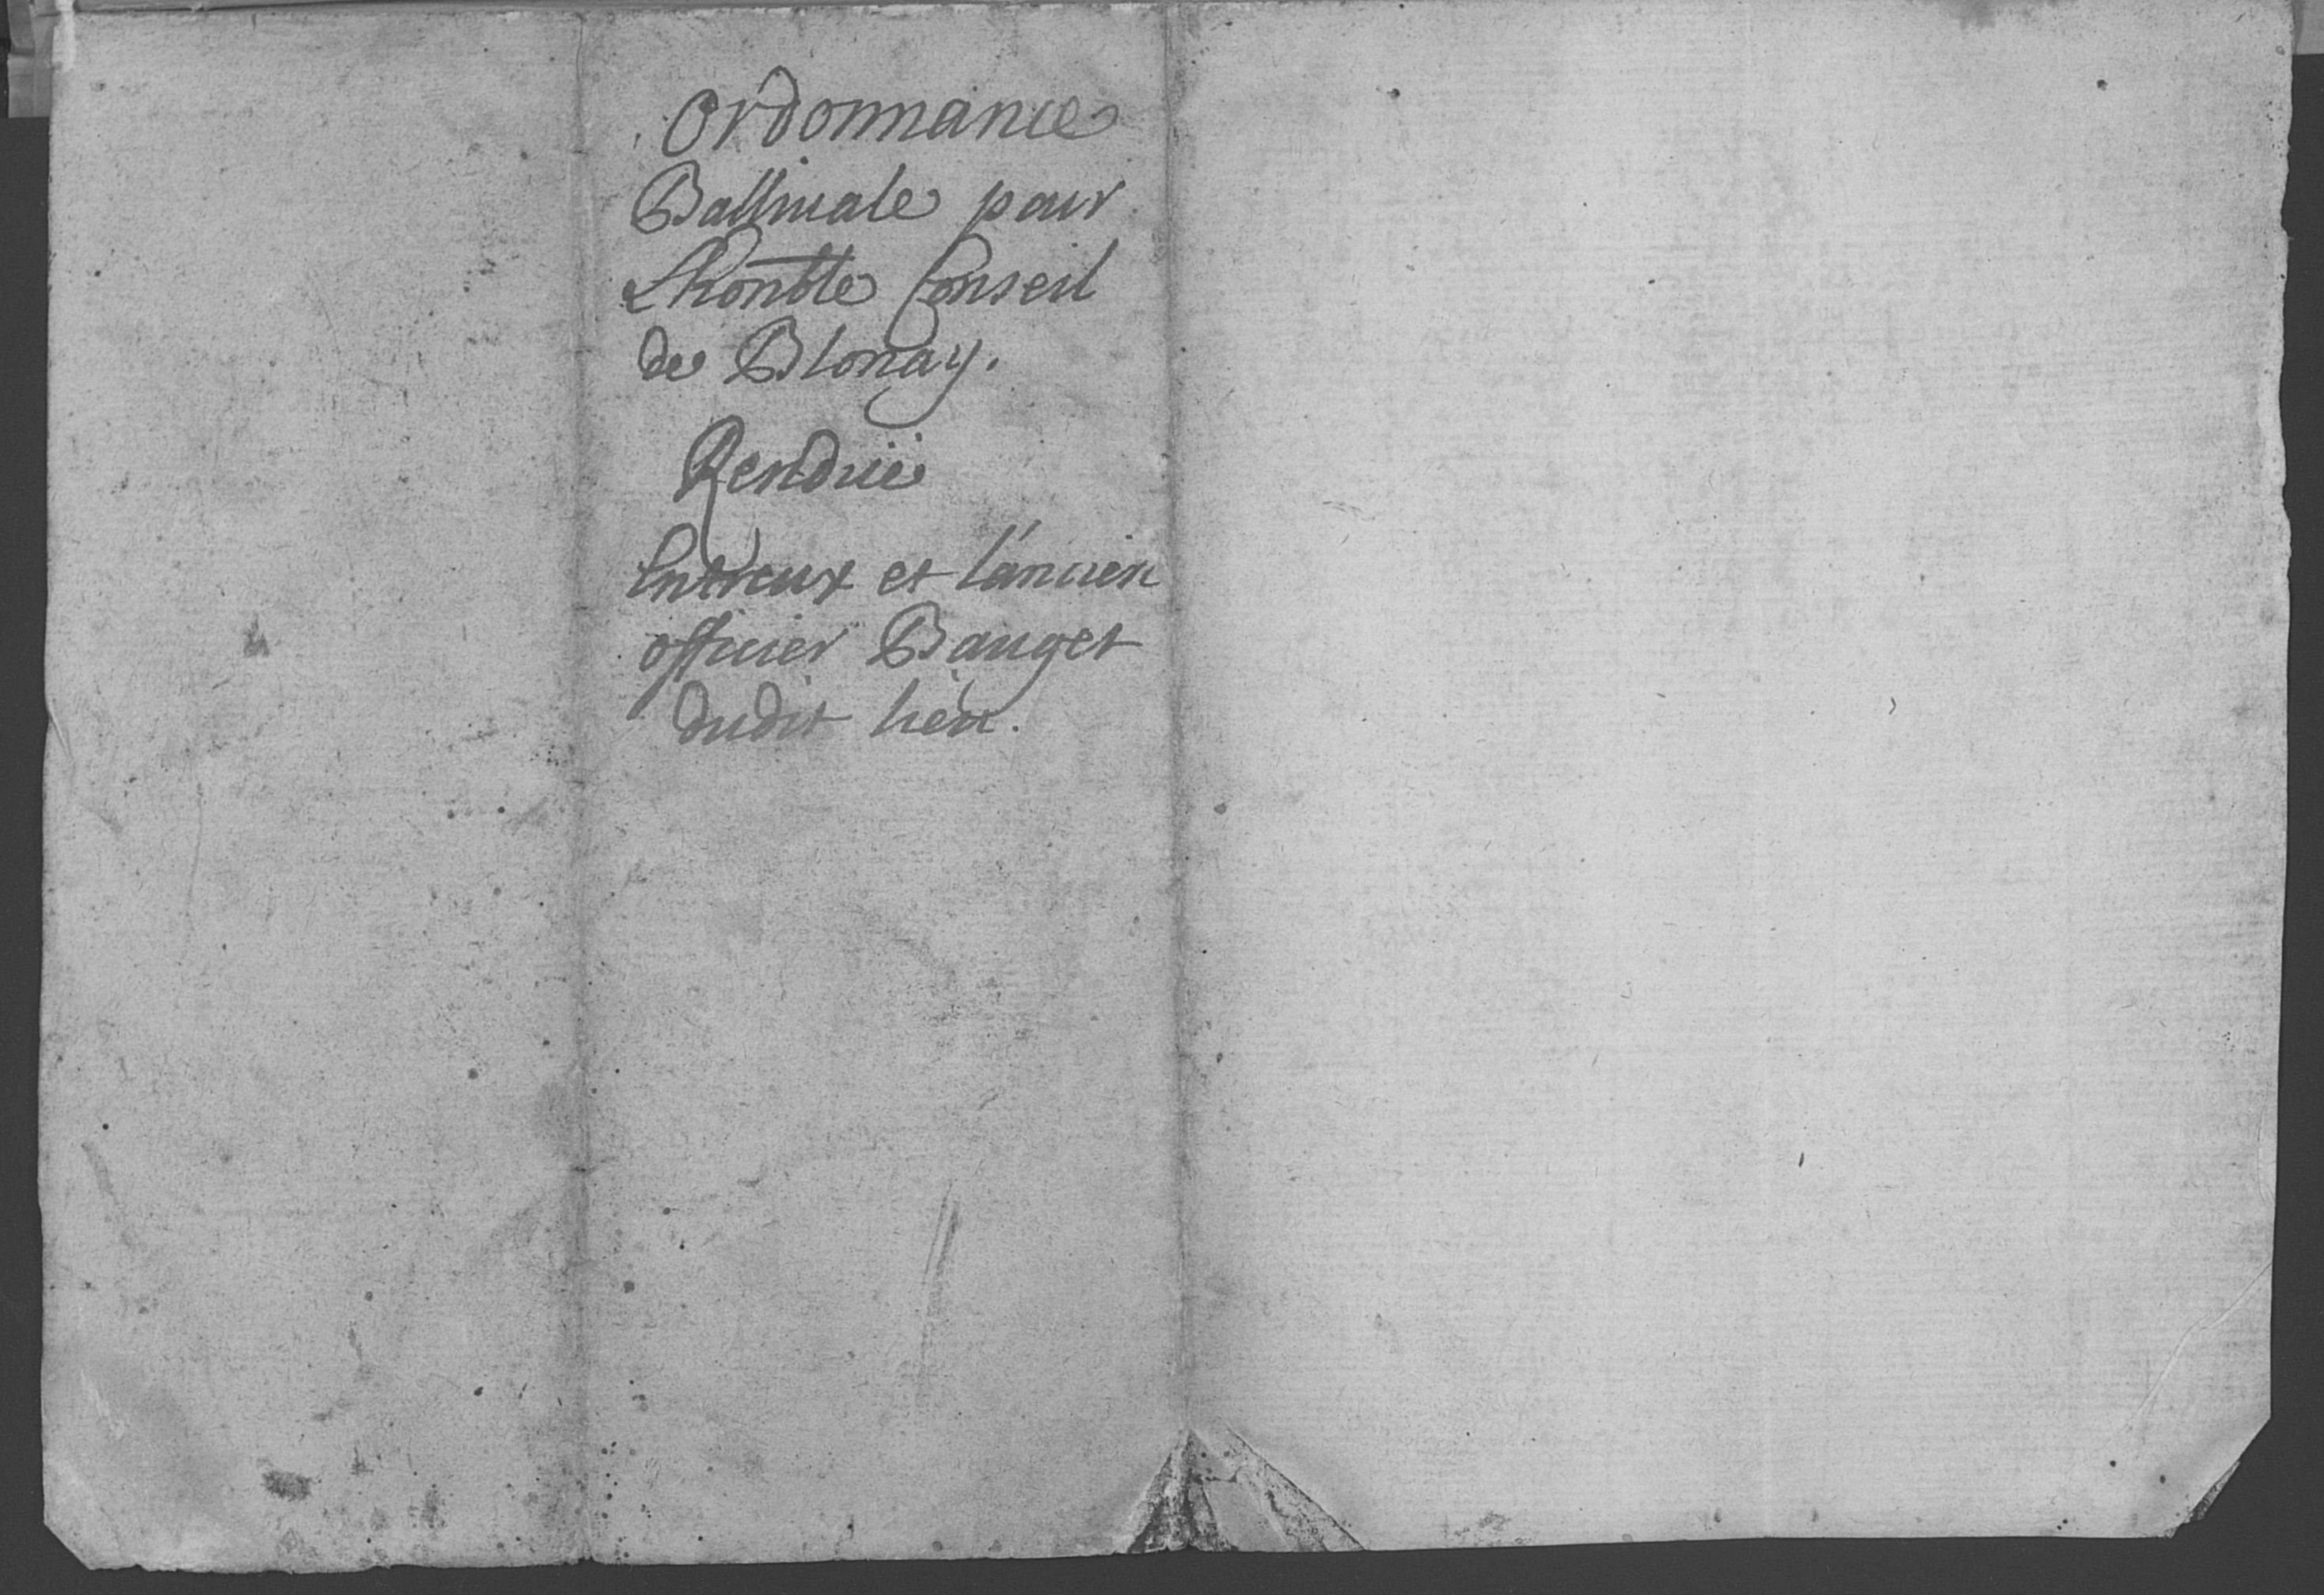 Ordonnance
Ballivale pour
Lhonble Conseil
de Blonay.
Renduë
Entreux et l'ancien
officier Bauget
dudit lieu.